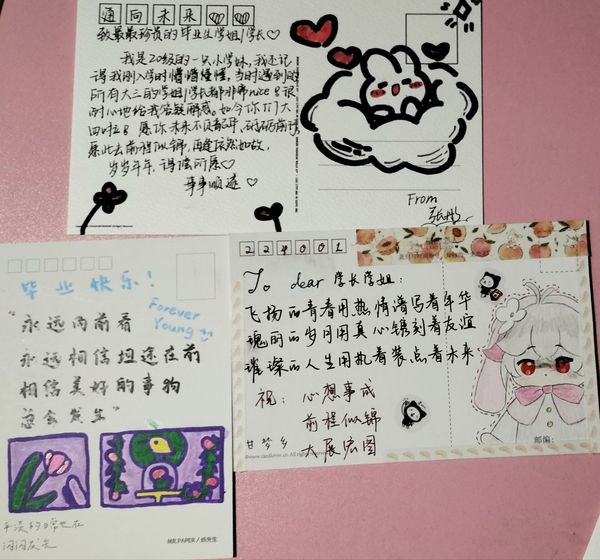 通向未来
致最最珍贵的毕业生学姐/学长♡
我是20级的一只小学妹,我还记
得我刚入学时懵懵懂懂,当时遇到的
所有大三的学姐/学长都非常nice&很
耐心地给我答疑解惑。如今你们大
四啦& 愿你未来不负韶华,砥砺前行
愿此去前程似锦,再逢依然如故,
岁岁年年,得偿所愿♡
事事顺遂♡
From
224001
To dear 学长学姐:
飞扬的青春用热情谱写着年华
瑰丽的岁月用真心镌刻着友谊
璀璨的人生用执着装点着未来
祝:心想事成
前程似锦
大展宏图
甘梦乡
邮编:
毕业快乐!
Forever
Young
“永远向前看
永远相信坦途在前
相信美好的事物
总会发生”
平淡的日常也在
闪闪发光
MR.PAPER / 纸先生